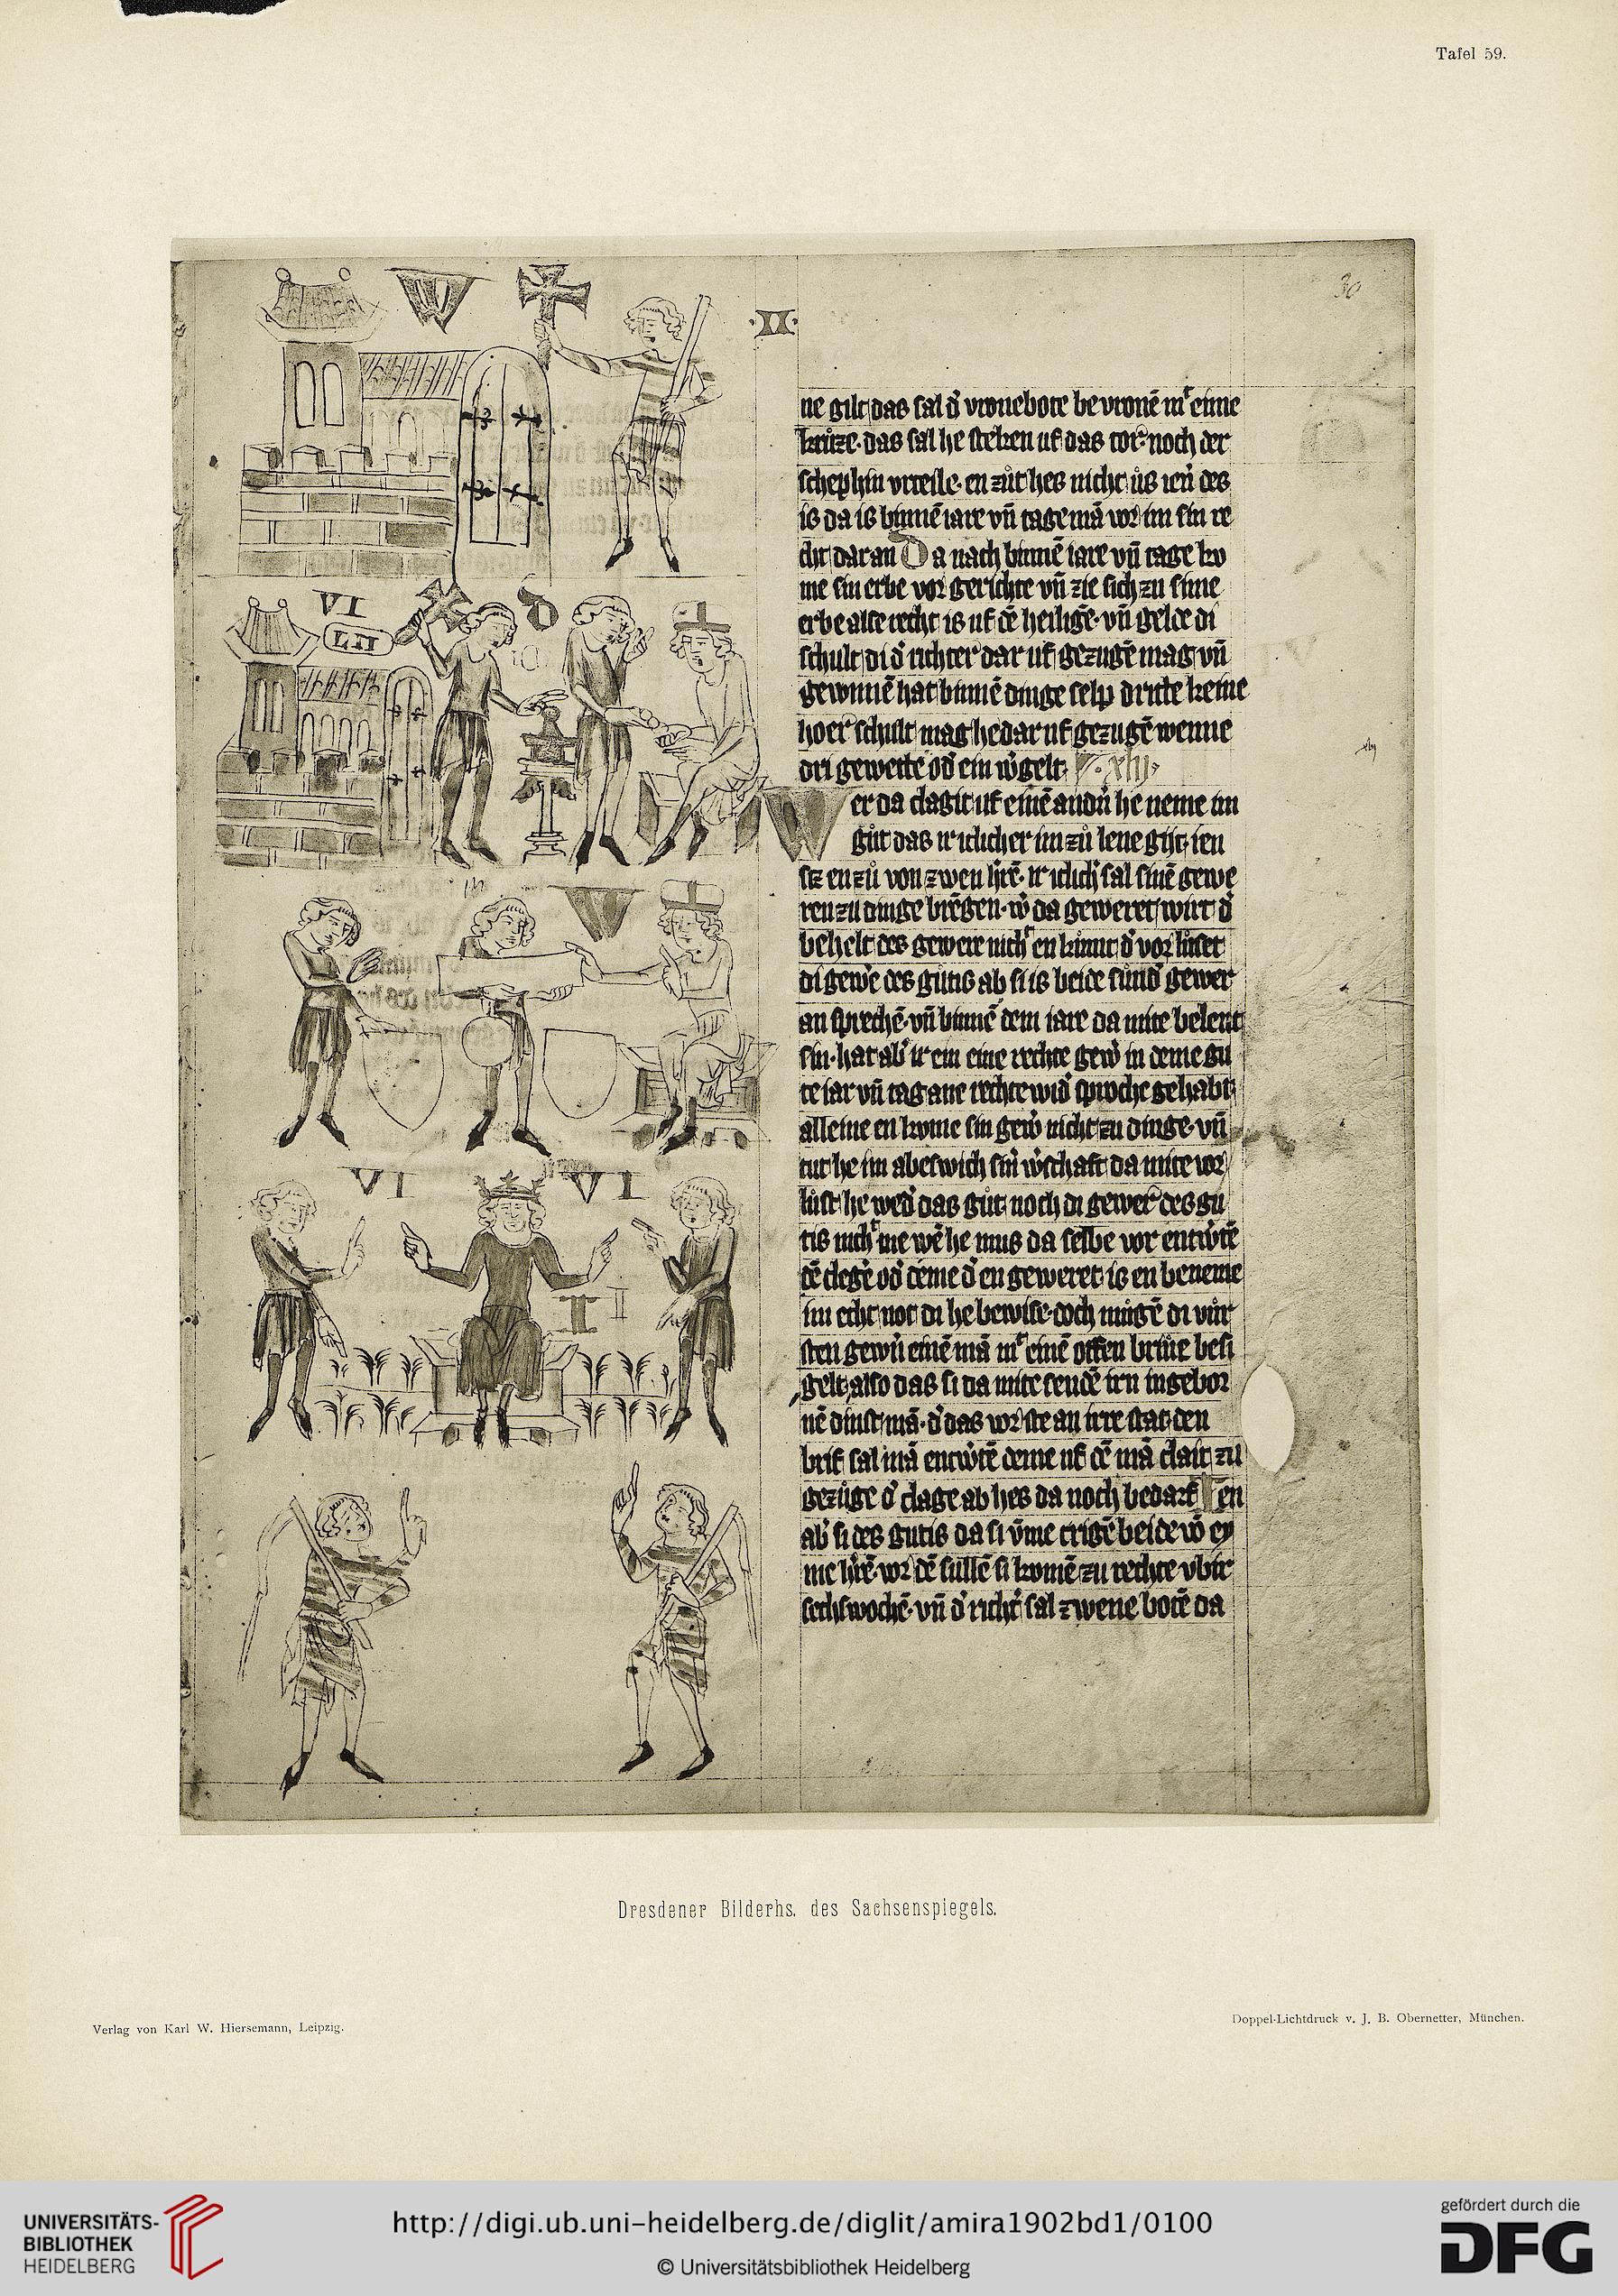 Tafel 59.
30
W
·II·
ne gilt das sal d' vronebote bevronē mit eime
kruze· das sal he steken uf das tor· noch der
schephin vrteile· en zut hes nicht us ien des
is da is binnē iare vn̄ tage mā vor im sin re
cht dar an Da nach binnē iare vn̄ tage ko
me sin erbe vor gerichte vn̄ zie sich zu sime
erbe alse recht is uf dē heiligē· vn̄ gelde di
schult di d' richter dar uf gezugē mag vn̄
gewunnē hat binnē dinge selp dritte keine
hoer schult mag he dar uf gezugē wenne
dri gewette od' ein w'gelt·
VI
LII
D
Wer da clagit uf einē andn̄ he neme im
gut das ir iclicher im zu lene giht· ien
sz en zu von zwen h'rē· ir iclich' sal sinē gewe
ren zu dinge brēgen· w' da geweret wirt d'
behelt des gewere nich en kumt d' vor luset
di gew'e des gutis ab si is beide sund' gewer
an sprechē· vn̄ binnē dem iare da mite belent
sin· hat ab' ir ein eine rechte gew' in deme gu
te iar vn̄ tag ane rechte wid' sproche gehabt
alleine en kome sin gew' nicht zu dinge· vn̄
tut he im abeswich sin' w'schaft da mite vor
lust he wed' das gut noch di gewer des gu
tis nich me wē he mus da selbe vor entw'tē
dē cleg'e od' deme d' en geweret is en beneme
im echt not di he bewise· doch mugē di vur
sten gew'n einē mā mit einē offen briue besi
gelt· also das si da mite sendē iren ingebor
nē dinstmā· d' das vorste an irre stat· den
brif sal mā entw'tē deme uf dē mā clait zu
gezuge d' clage ab hes da noch bedarf Ien
ab' si des gutis da si vm̄e crigē beide vō ey
me h'rē· vor dē sullē si komē zu rechte vbir
sechswochē· vn̄ d' richt' sal zwene botē da
W
VI
VI
I
Dresdener Bilderhs. des Sachsenspiegels.
Verlag von Karl W. Hiersemann, Leipzig.
Doppel-Lichtdruck v. J. B. Obernetter, München.
UNIVERSITÄTS-
BIBLIOTHEK
HEIDELBERG
http://digi.ub.uni-heidelberg.de/diglit/amira1902bd1/0100
© Universitätsbibliothek Heidelberg
gefördert durch die
DFG